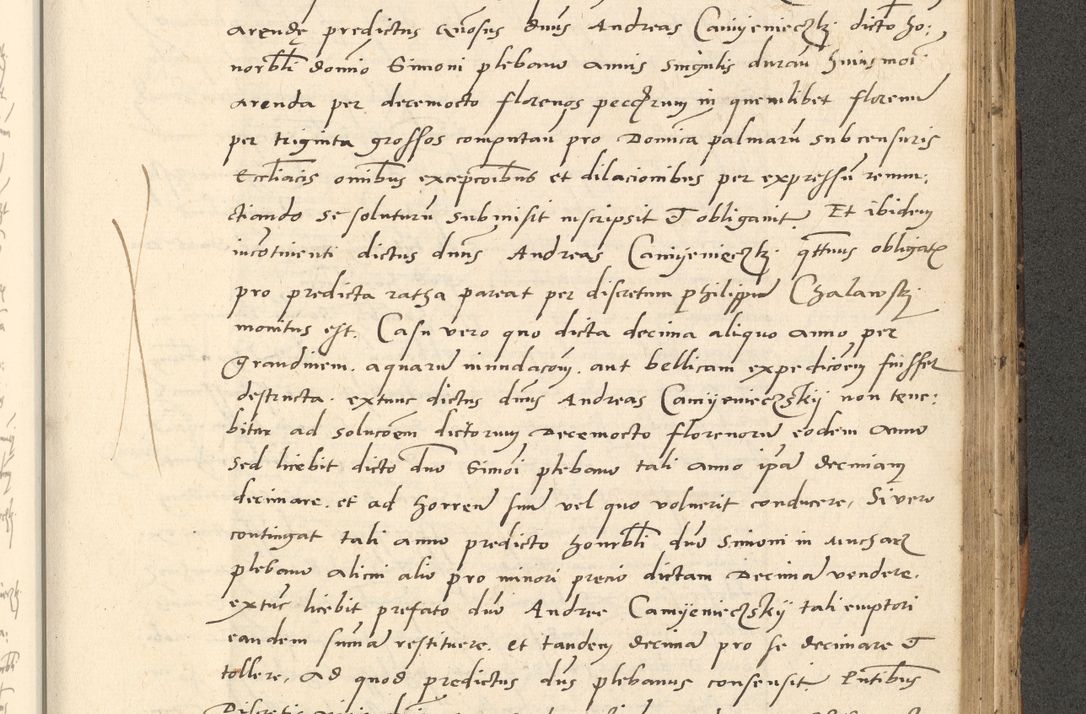 arendę predictus gnosus dnus Andreas Camyenieczkj dicto ho:
norbli domino Simoni plebano annis singulis duran huiusmoi
arenda per decemocto florenos peccarum in quemlibet florenu
per triginta grossos computan pro Domica palmaru sub censuris
Eccliacis omibus excepcoibus et dilacionibus per expressu renun:
ctiando se soluturu submisit inscripsit et obligauit. Et ibidem
incotinenti dictus dnus Andreas Camyenieczkj qttnus obligatz
pro predicta ratha pareat per discretum Philippu Chalawskj
monitus est. Casu vero quo dicta decima aliquo anno per
grandinem. aquaru inundacom. aut bellicam expedicoem fuisset
destructa. extunc dictus dnus Andreas Camyenieczskij non tene:
bitur ad solucoem dictorum Decemocto florenoru eodem anno
Sed licebit dicto dno Simoi plebano tali anno ipam decimam
decimare. et ad horreu suu vel quo voluerit conducere, Si vero
contingat tali anno predicto honorbli dno Simoni in Mucharz
plebano alicui alio pro minori precio dictam Decima vendere.
extuc licebit prefato dno Andree Camyenieczskij tali emptori
eandem suma restituere. et tandem decima pro se decimare et
tollere, Ad quod predictus dns plebanus consensit. Pntibus
Discretis